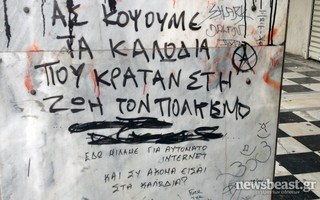 ΑΣ ΚΟΨΟΥΜΕ
ΤΑ ΚΑΛΩΔΙΑ
ΠΟΥ ΚΡΑΤΑΝ ΣΤΗ
ΖΩΗ ΤΟΝ ΠΟΛΕΜΟ
ΕΔΩ ΜΙΛΑΣ ΓΙΑ ΑΥΤΟΝΑΤΟ
INTERNET
ΚΑΙ ΣΥ ΑΚΟΜΑ ΕΙΣΑΙ
ΣΤΑ ΚΑΛΩΔΙΑ?
newsbeast.gr